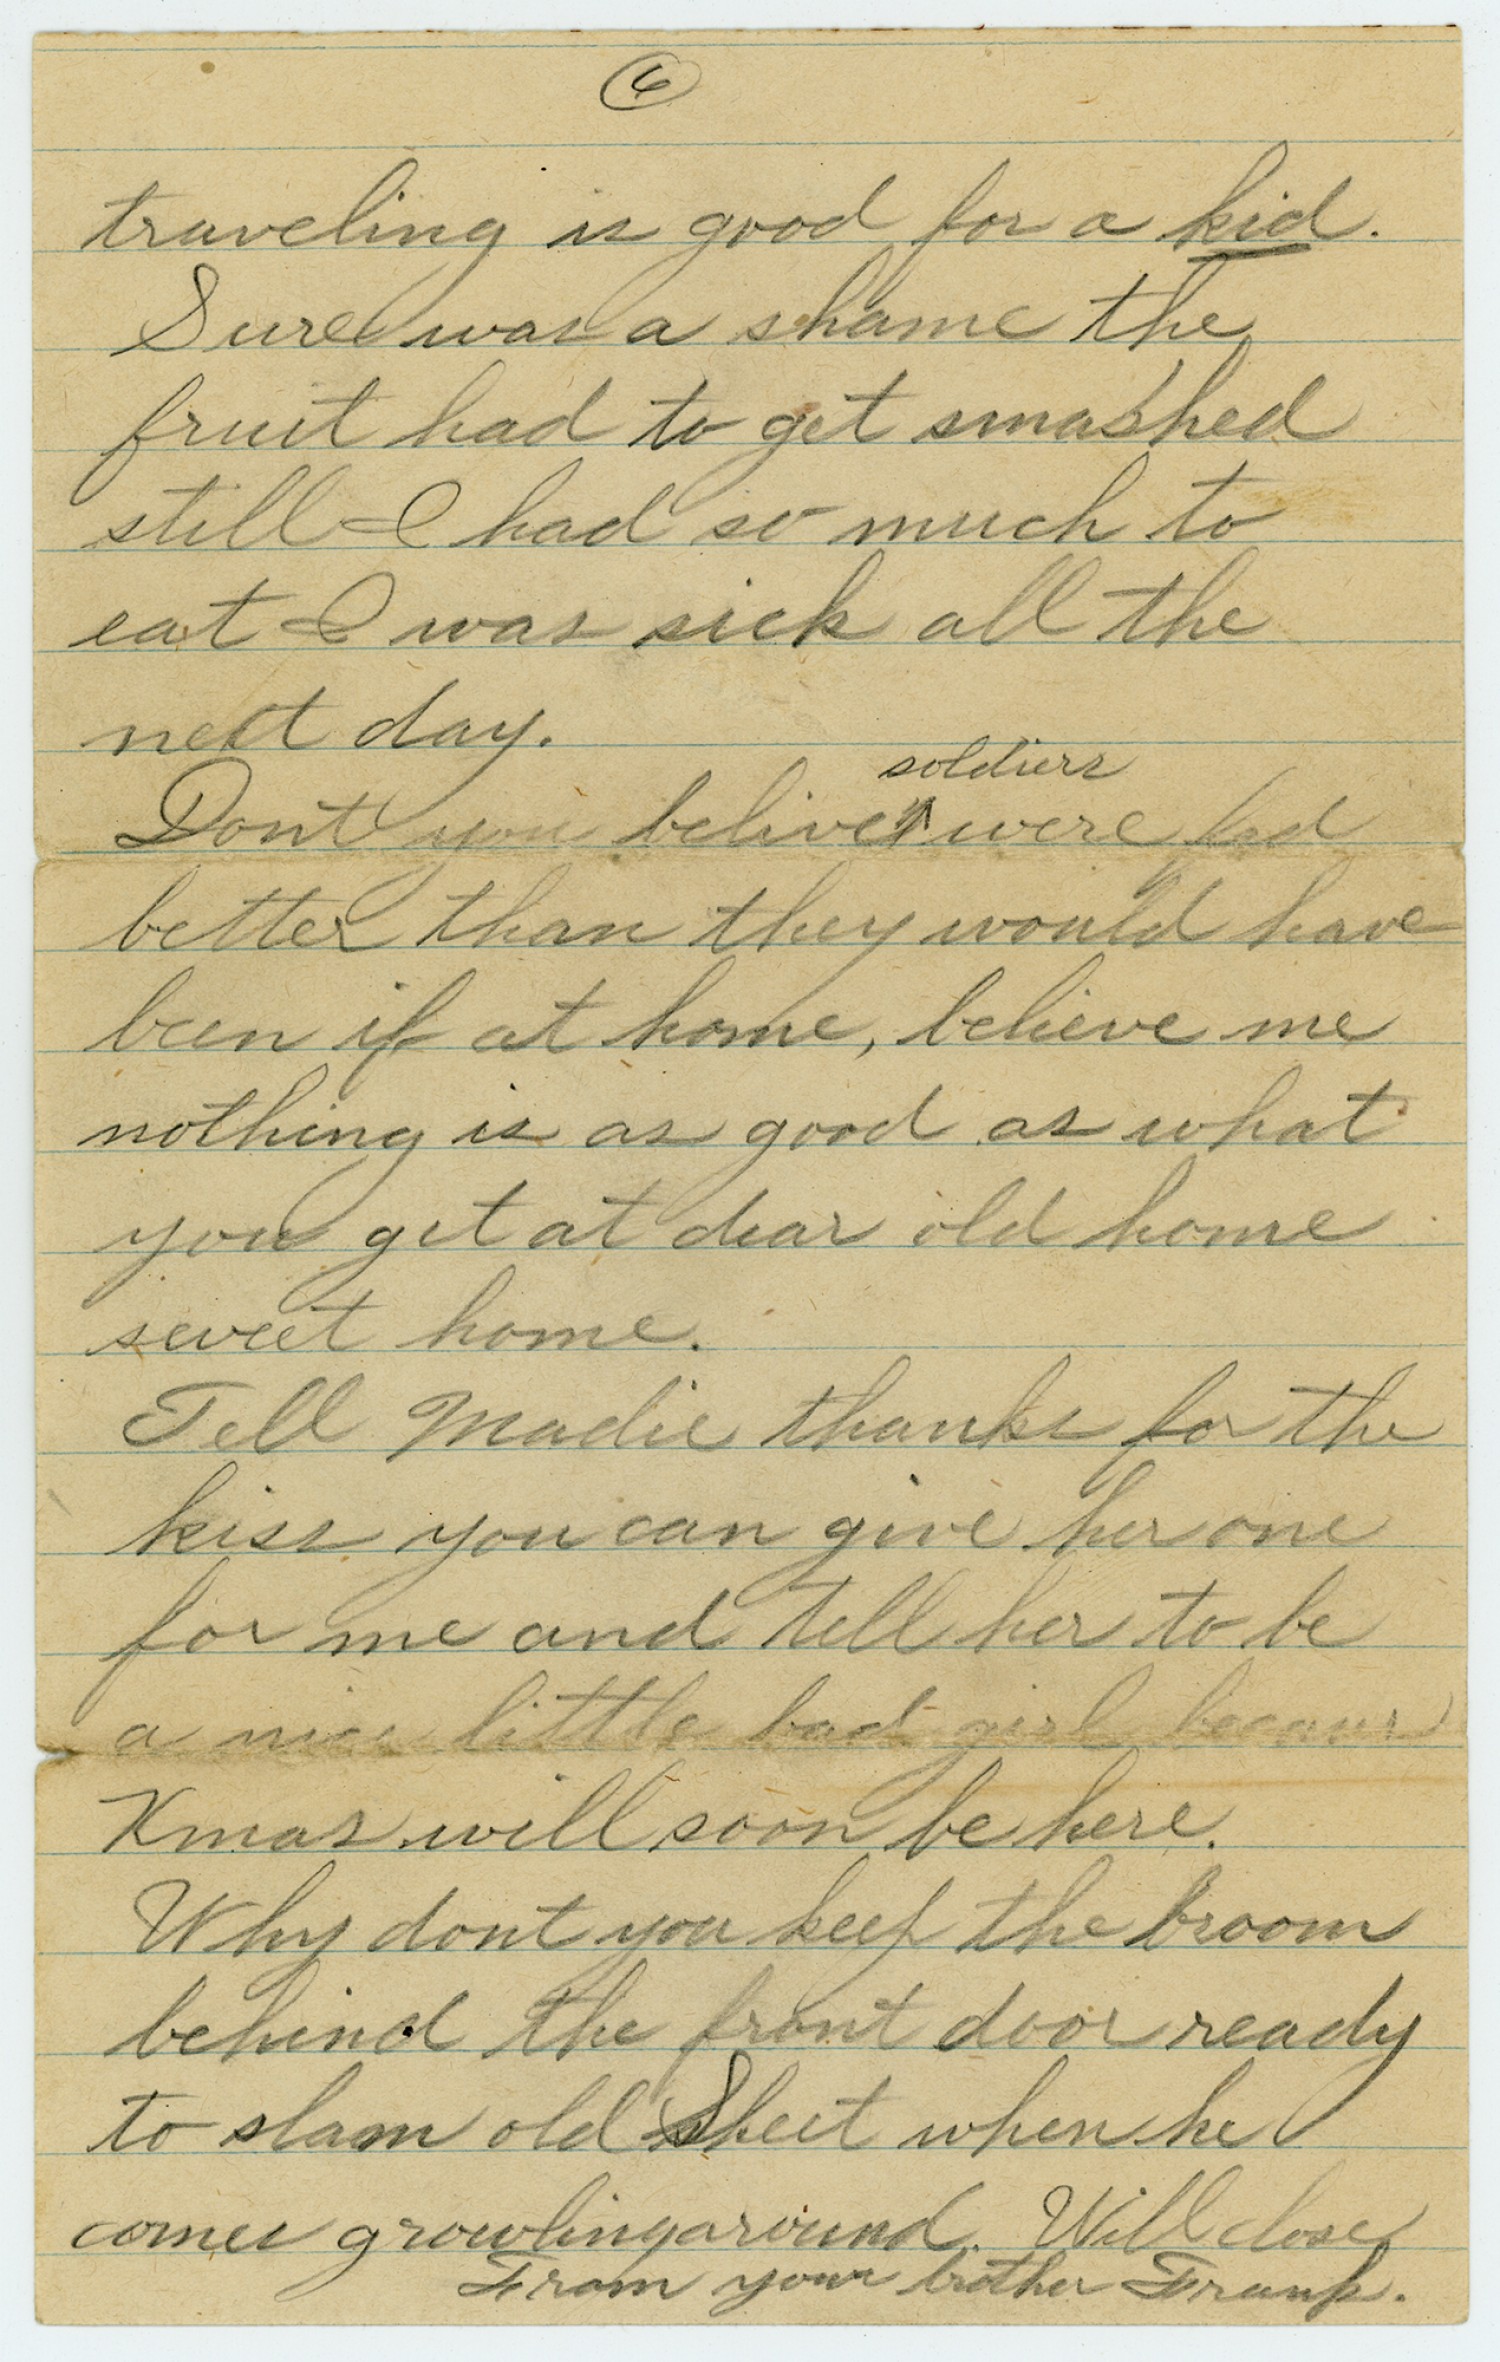 6
traveling is good for a kid.
Sure was a shame the
fruit had to get smashed
still I had so much to
eat I was sick all the
next day.
soldiers
Dont you belive were fed
better than they would have
been if at home, believe me
nothing is as good as what
you get at dear old home
sweet home.
Tell Madie thanks for the
kiss you can give her one
for me and tell her to be
a nice little bad girl because
Xmas will soon be here.
Why dont you keep the broom
behind the front door ready
to slam old Sheet when he
comes growling around. Will close
From your brother Frank.